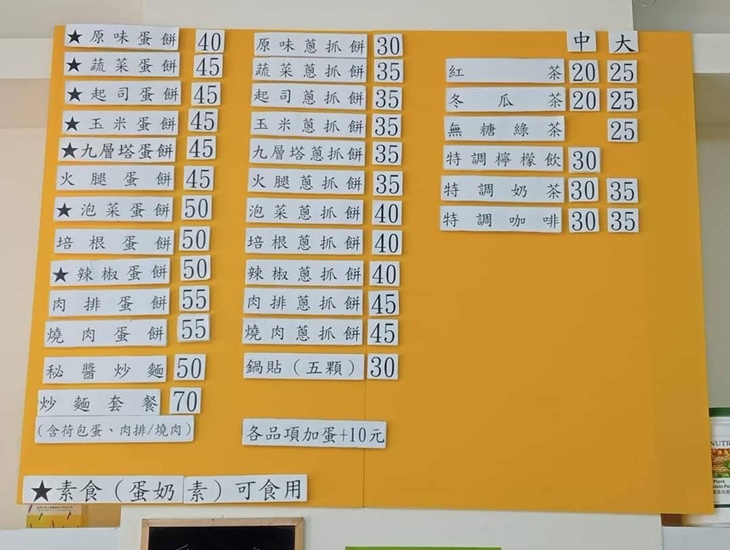 ★原味蛋餅 40
★蔬菜蛋餅 45
★起司蛋餅 45
★玉米蛋餅 45
★九層塔蛋餅 45
火腿蛋餅 45
★泡菜蛋餅 50
培根蛋餅 50
★辣椒蛋餅 50
肉排蛋餅 55
燒肉蛋餅 55
秘醬炒麵 50
炒麵套餐 70
(含荷包蛋、肉排/燒肉)
原味蔥抓餅 30
蔬菜蔥抓餅 35
起司蔥抓餅 35
玉米蔥抓餅 35
九層塔蔥抓餅 35
火腿蔥抓餅 35
泡菜蔥抓餅 40
培根蔥抓餅 40
辣椒蔥抓餅 40
肉排蔥抓餅 45
燒肉蔥抓餅 45
鍋貼(五顆) 30
各品項加蛋+10元
中 大
紅茶 20 25
冬瓜茶 20 25
無糖綠茶 25
特調檸檬飲 30
特調奶茶 30 35
特調咖啡 30 35
★素食(蛋奶素)可食用